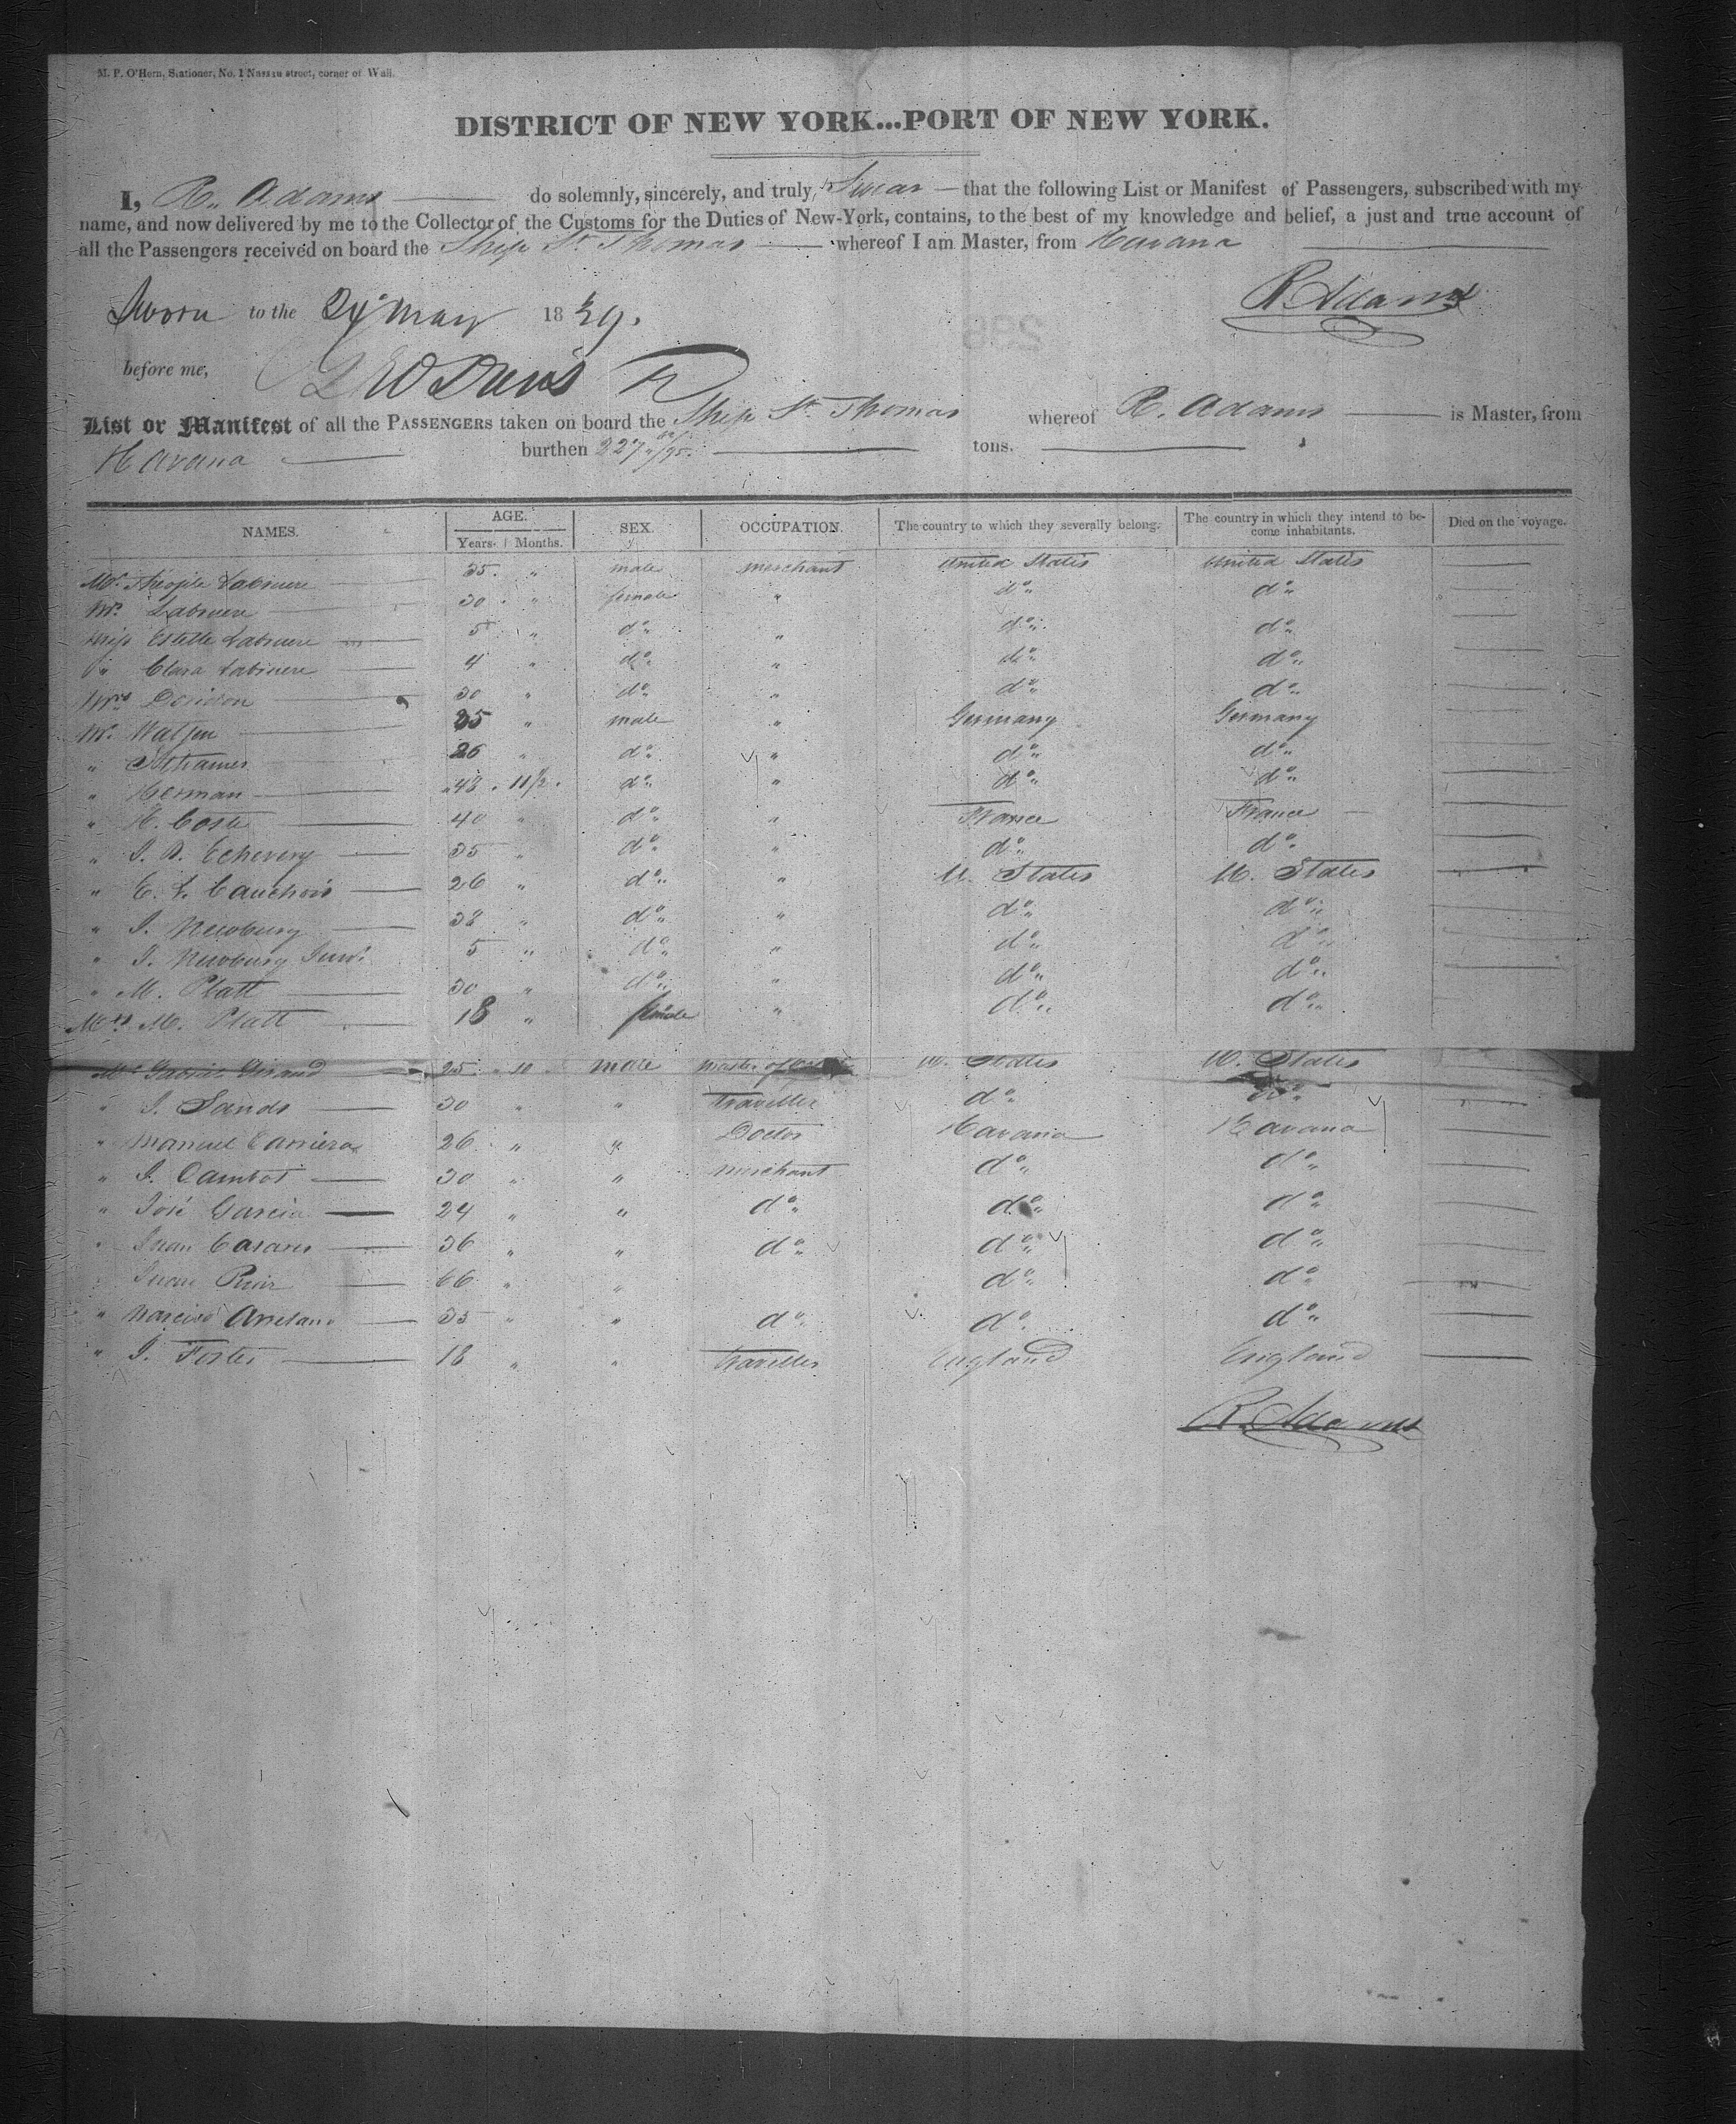 M. P. O'Hern, Stationer, No. 1 Nassau street, corner of Wall.
DISTRICT OF NEW YORK...PORT OF NEW YORK.
I, R. Adams do solemnly, sincerely, and truly, Swear that the following List or Manifest of Passengers, subscribed with my
name, and now delivered by me to the Collector of the Customs for the Duties of New-York, contains, to the best of my knowledge and belief, a just and true account of
all the Passengers received on board the Ship St Thomas whereof I am Master, from Havana
R Adams
Sworn to the 24 May 1839.
before me,
List or Manifest of all the PASSENGERS taken on board the Ship St Thomas whereof R. Adams is Master, from
Havana burthen 227 /95 tons.
NAMES. AGE. SEX. OCCUPATION. The country to which they severally belong. The country in which they intend to become inhabitants. Died on the voyage.
Years. Months.
Mr. Labruere 35 " male merchant United States United States
Labruere 30 " female " do do
Miss Estelle Labruere 5 " do " do do
" Clara Labruere 4 " do " do do
Mrs 30 " do " do do
Mr. 35 " male " Germany Germany
" 26 " do " do do
" Herman 48 . 11/2 . do " do do
" H. Coste 40 " do " France France
" J. B. Echevery 35 " do " do do
" E. F. Cauchois 26 " do " U. States U. States
" J. Newburg 38 " do " do do
" J. Newburg Junr. 5 " do " do do
" M. Platt 30 " do " do do
Mrs M. Platt 18 " female " do do
Mr Giraud 25 " 10 male master of U. States U. States
" J. Sands 30 " " Traveller do do
" Manuel Carrera 26 " " Doctor Havana Havana
" J. Cambot 30 " " merchant do do
" José Garcia 24 " " do do do
" Juan Casares 36 " " do do do
" Juan 66 " " do do
" Narciso 35 " " do do do
" J. Foster 18 " " traveller England England
R. Adams